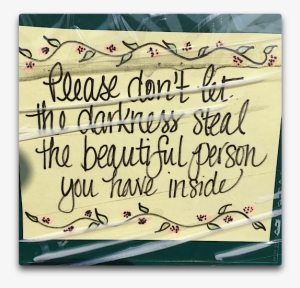 Please don't let
the darkness steal
the beautiful person
you have inside